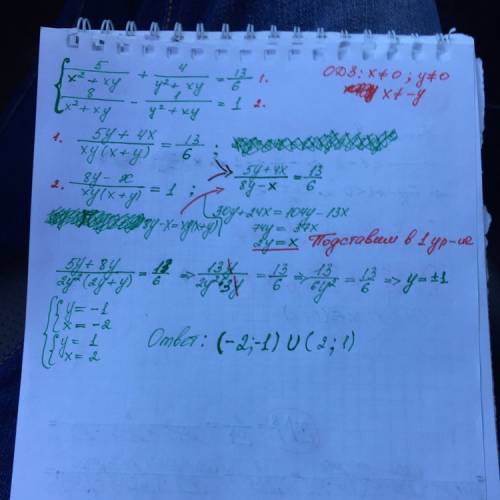 { 5/(x²+xy) + 4/(y²+xy) = 13/6 1. ОДЗ: x≠0; y≠0
8/(x²+xy) - 1/(y²+xy) = 1 2. x≠-y
1. (5y+4x)/(xy(x+y)) = 13/6 ;
(5y+4x)/(8y-x) = 13/6
2. (8y-x)/(xy(x+y)) = 1 ;
30y+24x=104y-13x
8y-x=xy(x+y) 74y=37x
2y=x Подставим в 1 ур-ие
(5y+8y)/(2y²(2y+y)) = 13/6 => 13y/(2y²·3y) = 13/6 => 13/(6y²) = 13/6 => y=±1
{ { y=-1
x=-2
{ y=1
x=2
Ответ: (-2;-1) ∪ (2;1)